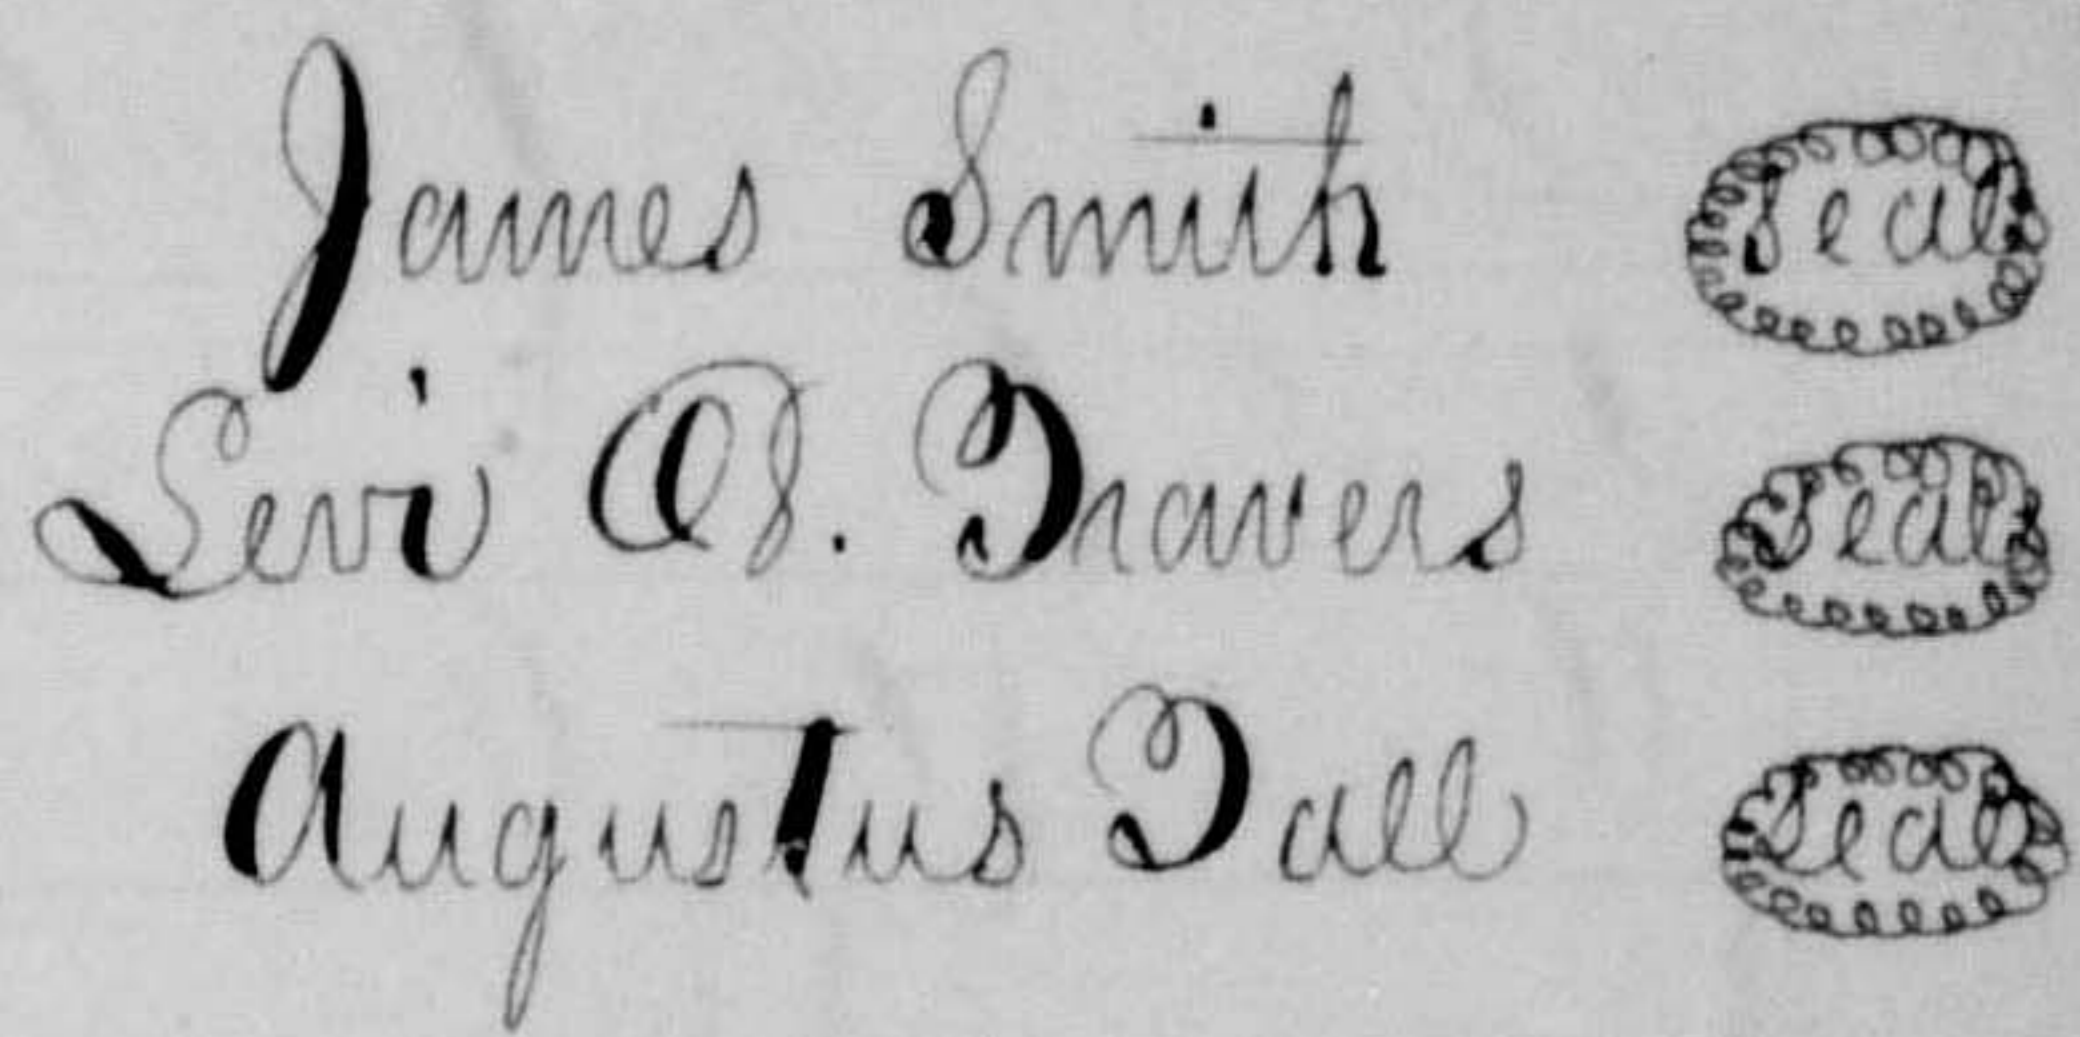 James Smith Seal
Levi D. Travers Seal
Augustus Tall Seal